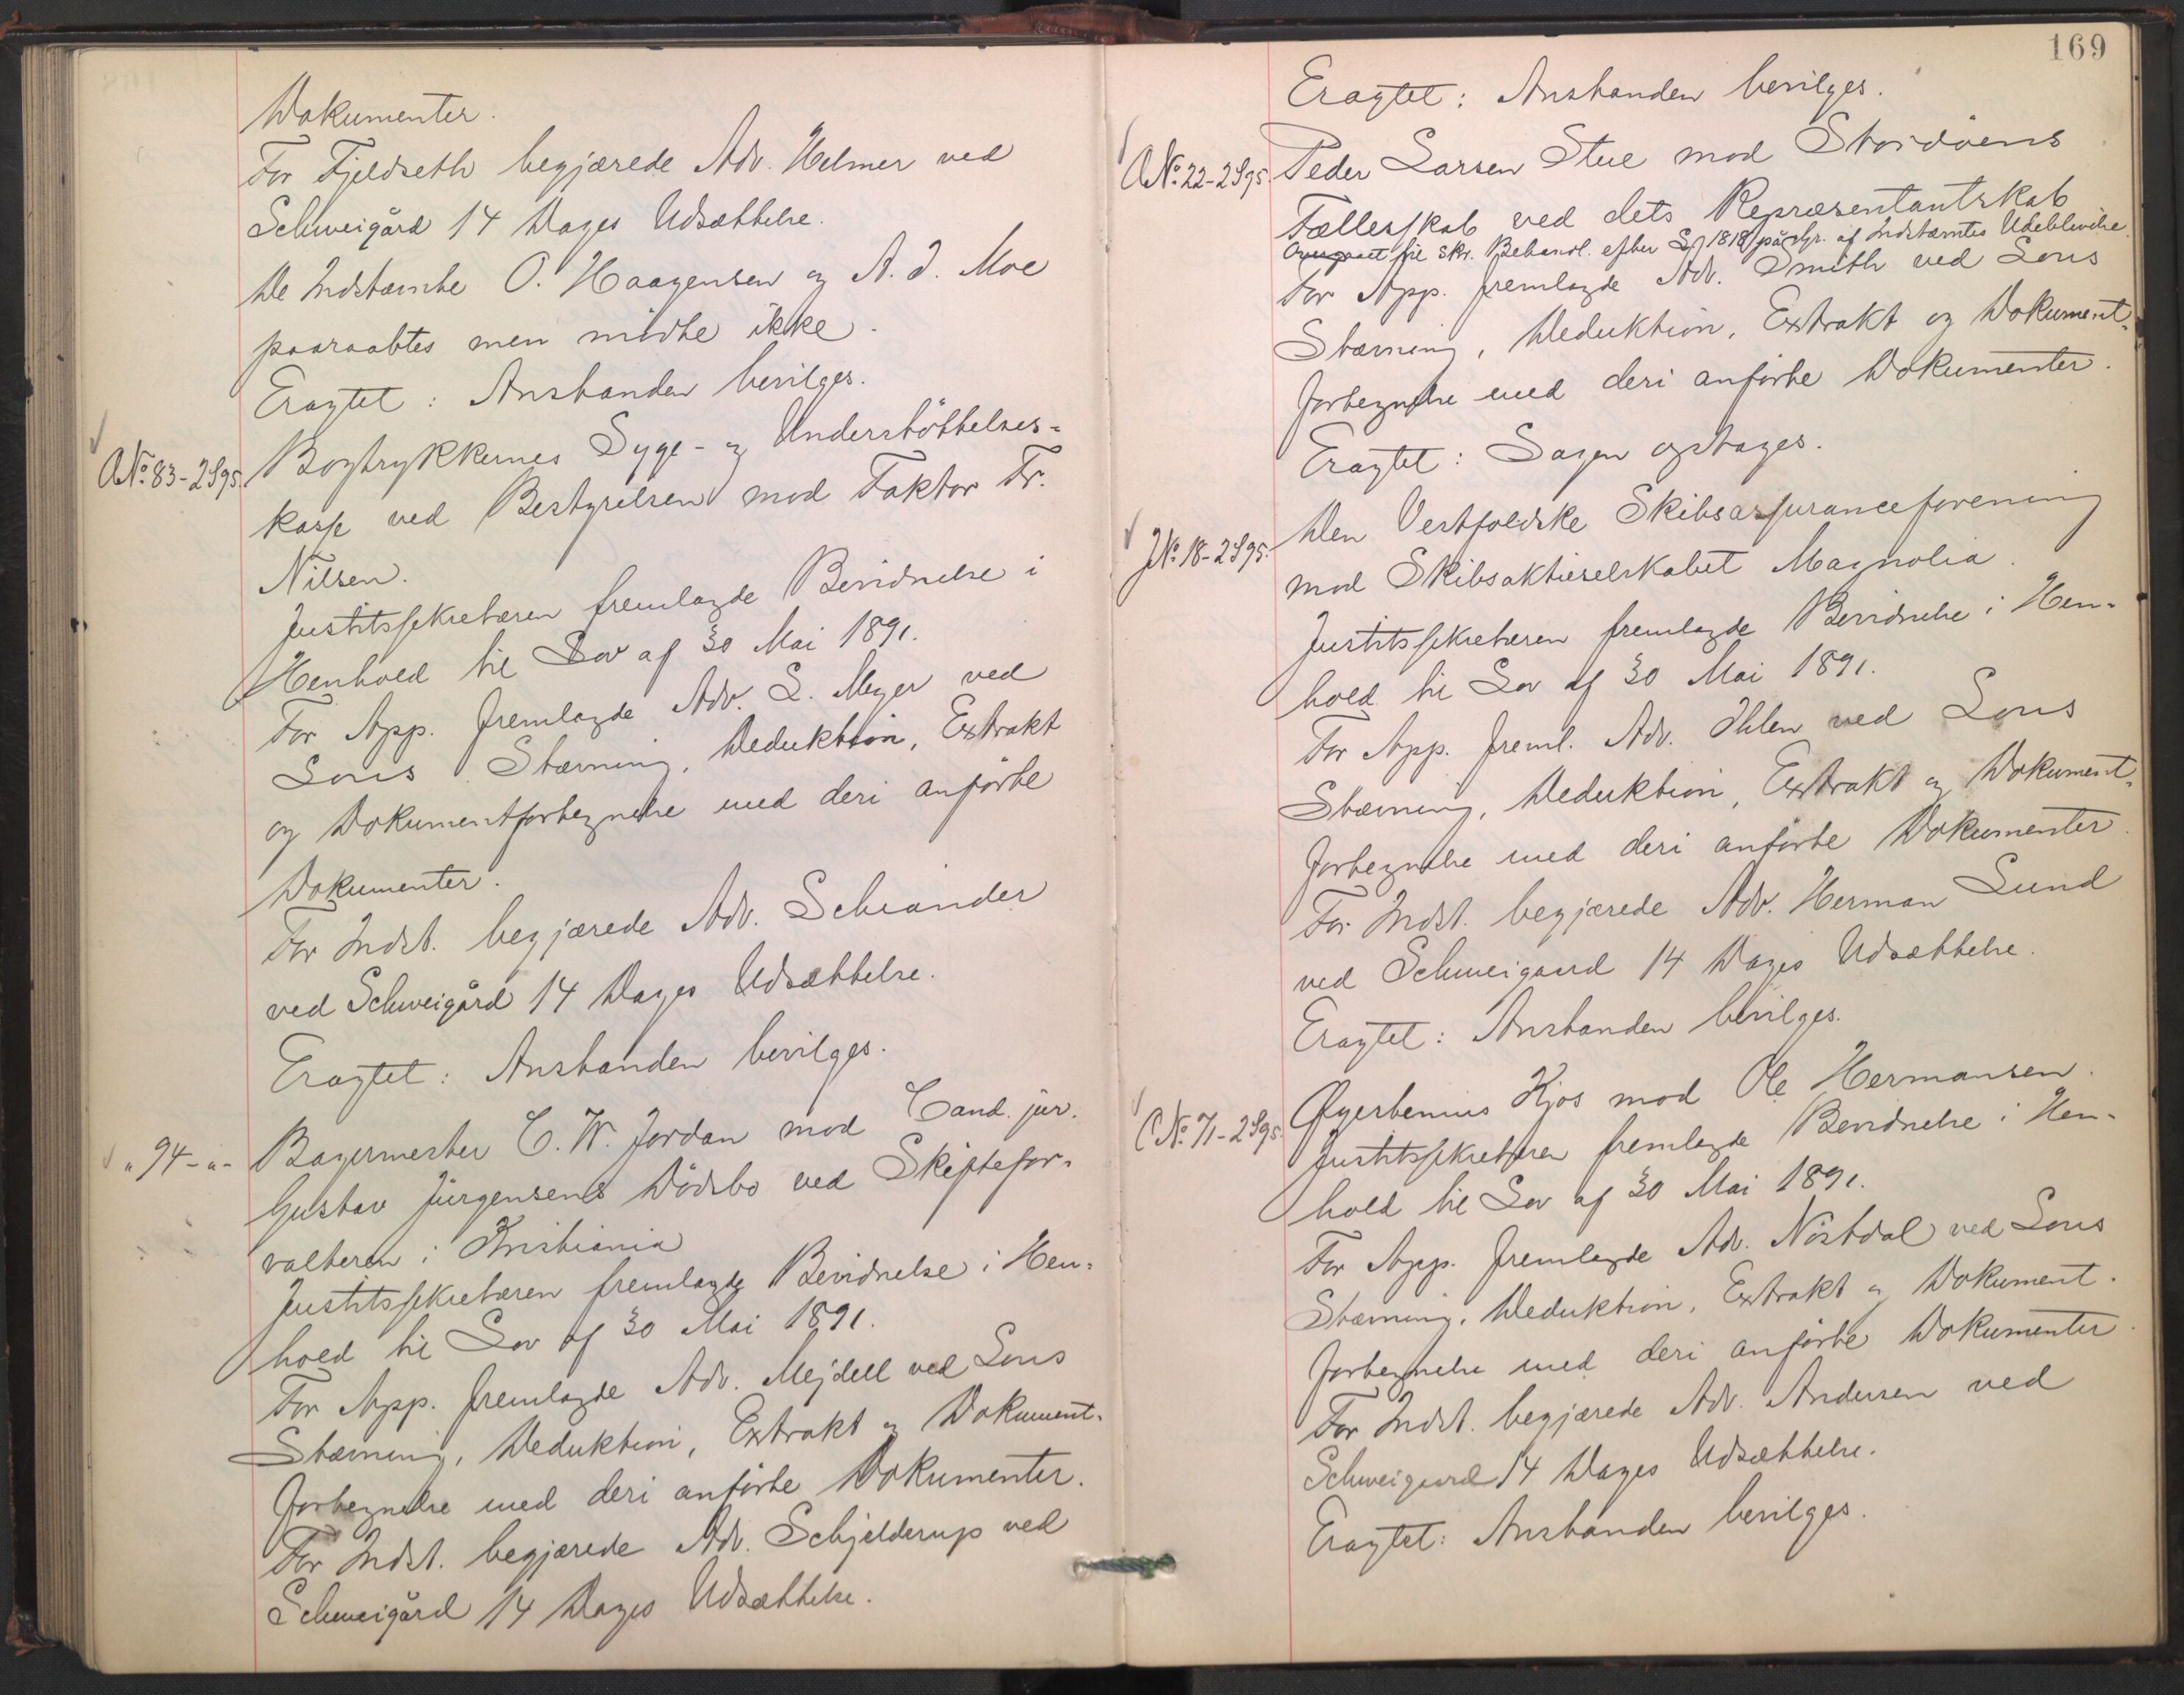 Dokumenter.
For Fjeldseth begjærede Adv. Helmer ved
Schweigård 14 Dages Udsættelse.
De Indstævnte O. Haagensen og A. J. Moe
paaraabtes men mödte ikke.
Eragtet: Anstanden bevilges.
A№ 83-2S95. Bogtrykkernes Syge- og Understöttelses-
kasse ved Bestyrelsen mod Faktor Fr.
Nilsen.
Justitssekretæren fremlagde Bevidnelse i
Henhold til Lov af 30 Mai 1891.
For App. fremlagde Adv. L. Meyer ved
Lous Stævning, Deduktion, Extrakt
og Dokumentfortegnelse med deri anförte
Dokumenter.
For Indst. begjærede Adv. Schiander
ved Schweigård 14 Dages Udsættelse.
Eragtet: Anstanden bevilges.
" 94-"- Bagermester C. W. Jordan mod Cand. jur.
Gustav Jürgensens Dödsbo ved Skiftefor-
valteren i Kristiania
Justitssekretæren fremlagde Bevidnelse i Hen-
hold til Lov af 30 Mai 1891.
For App. fremlagde Adv. Mejdell ved Lous
Stævning, Deduktion, Extrakt og Dokument-
fortegnelse med deri anförte Dokumenter.
For Indst. begjærede Adv. Schjelderup ved
Schweigård 14 Dages Udsættelse.
169
Eragtet: Anstanden bevilges.
A№ 22-2S95. Peder Larsen Stue mod Stordöens
Fællesskab ved dets Repræsentantskab
til skr. Behandl. efter 1818 på Gr. af Indstævntes Udeblivelse.
For App. fremlagde Adv. Smith ved Lous
Stævning, Deduktion, Extrakt og Dokument-
fortegnelse med deri anförte Dokumenter.
Eragtet: Sagen optages.
J№ 18-2S95. Den Vestfoldske Skibsassuranceforening
mod Skibsaktieselskabet Magnolia.
Justitssekretæren fremlagde Bevidnelse i Hen-
hold til Lov af 30 Mai 1891.
For App. freml. Adv. Ihlen ved Lous
Stævning, Deduktion, Extrakt og Dokument-
fortegnelse med deri anförte Dokumenter.
For Indst. begjærede Adv. Herman Lund
ved Schweigaard 14 Dages Udsættelse.
Eragtet: Anstanden bevilges.
C№ 71-2S95. Kjos mod Ole Hermansen.
Justitssekretæren fremlagde Bevidnelse i Hen-
hold til Lov af 30 Mai 1891.
For App. fremlagde Adv. Nöstdal ved Lous
Stævning, Deduktion, Extrakt og Dokument-
fortegnelse med deri anförte Dokumenter.
For Indst. begjærede Adv. Andersen ved
Schweigaard 14 Dages Udsættelse.
Eragtet: Anstanden bevilges.